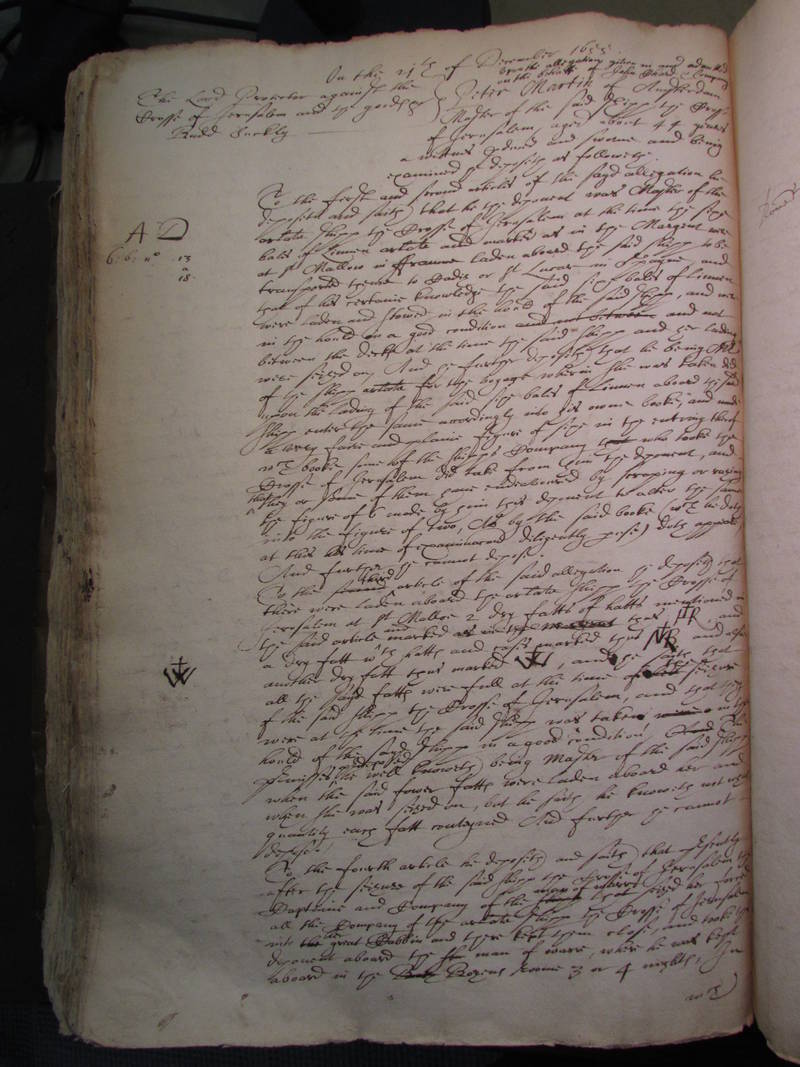 On the 21th of December 1655.
The Lord Protector against the
Crosse of Jerusalem and the goods
Rudd Buckly
upon the allegation given in and admitted
on the behalfe of John and Company
Peter Martin of Amsterdam
Master of the said shipp the Crosse
of Jerusalem, aged about 44 yeares
a wittnes produced and sworne and being
examined deposeth as followeth.
To the first and second articles of the sayd allegation he
deposeth and saith that he the deponent was Master of the
artate shipp the Crosse of Jerusalem at the time the sixe
bales of linnen artate and marked as in the Margent were
at St Mallow in ffraunce laden aboard the said shipp to be
transported thence to Cadiz or St Lucar in Spayne, and
that of his certaine knowledge the said six bales of linnen
were laden and stowed in the hould of the said shipp, and were
in the hould in a good condition and not between and not
between the decks at the time the said shipp and her lading
were seized on, And he further deposeth that he being Mr
of the shipp artate for the voyage wherein she was taken did
upon the lading of the said sixe bales of linnen aboard the said
shipp enter the same accordingly into his owne booke, and made
a very faire and plaine figure of sixe in the entring thereof
wch booke some of the shipps Company that who tooke the
Crosse of Jerusalem did take from him the deponent, and
that they or some of them have endeavoured by scraping or razing
the figure of 6 made by him this deponent to alter the same
into the figure of two, As by the said booke (wch he doth
at this his time of examination diligently peruse) doth appeare
And further he cannot depose.
To the third article of the said allegation he deposeth that
there were laden aboard the artate shipp the Crosse of
Jerusalem at St Malloe 2 dry fatts of hatts mentioned in
the said article and marked as in the Margent thus HR and
a dry fatt wth hatts and marked thus NR and alsoe
another dry fatt thus marked W, and he saith that
all the said fatts were full at the time of the seizure
of the said shipp the Crosse of Jerusalem, and that they
were at the time the said shipp was taken in the
hould of the sayd shipp in a good condition, And the
premisses deposed he well knoweth being Master of the said shipp
when the said fower fatts were laden aboard her and
when she was seized on, but he saith he knoweth not what
quantity each fatt conteyned And further he cannot
depose.
To the fourth article he deposeth and saith, that presently
after the seizure of the said shipp the Crosse of Jerusalem the
Captaine and Company of the man of warre that seized her forced
all the Company of the artate shipp the Crosse of Jerusalem
into the great Cabbin and there kept them close, and tooke the
deponent aboard the man of warre, where he was kept
aboard in the roome 3 or 4 nights, In
wch
A D
6: 6: no 13
a
18
W